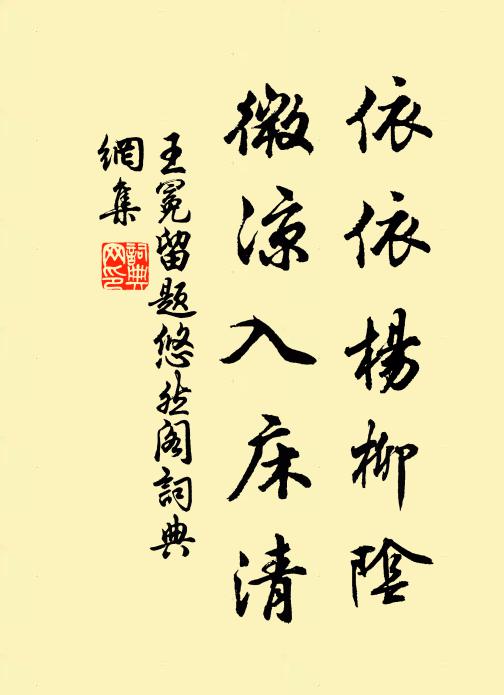 依依楊柳陰
微涼入床清
王冕留題悠然閣詞典
網集
詞典
网印